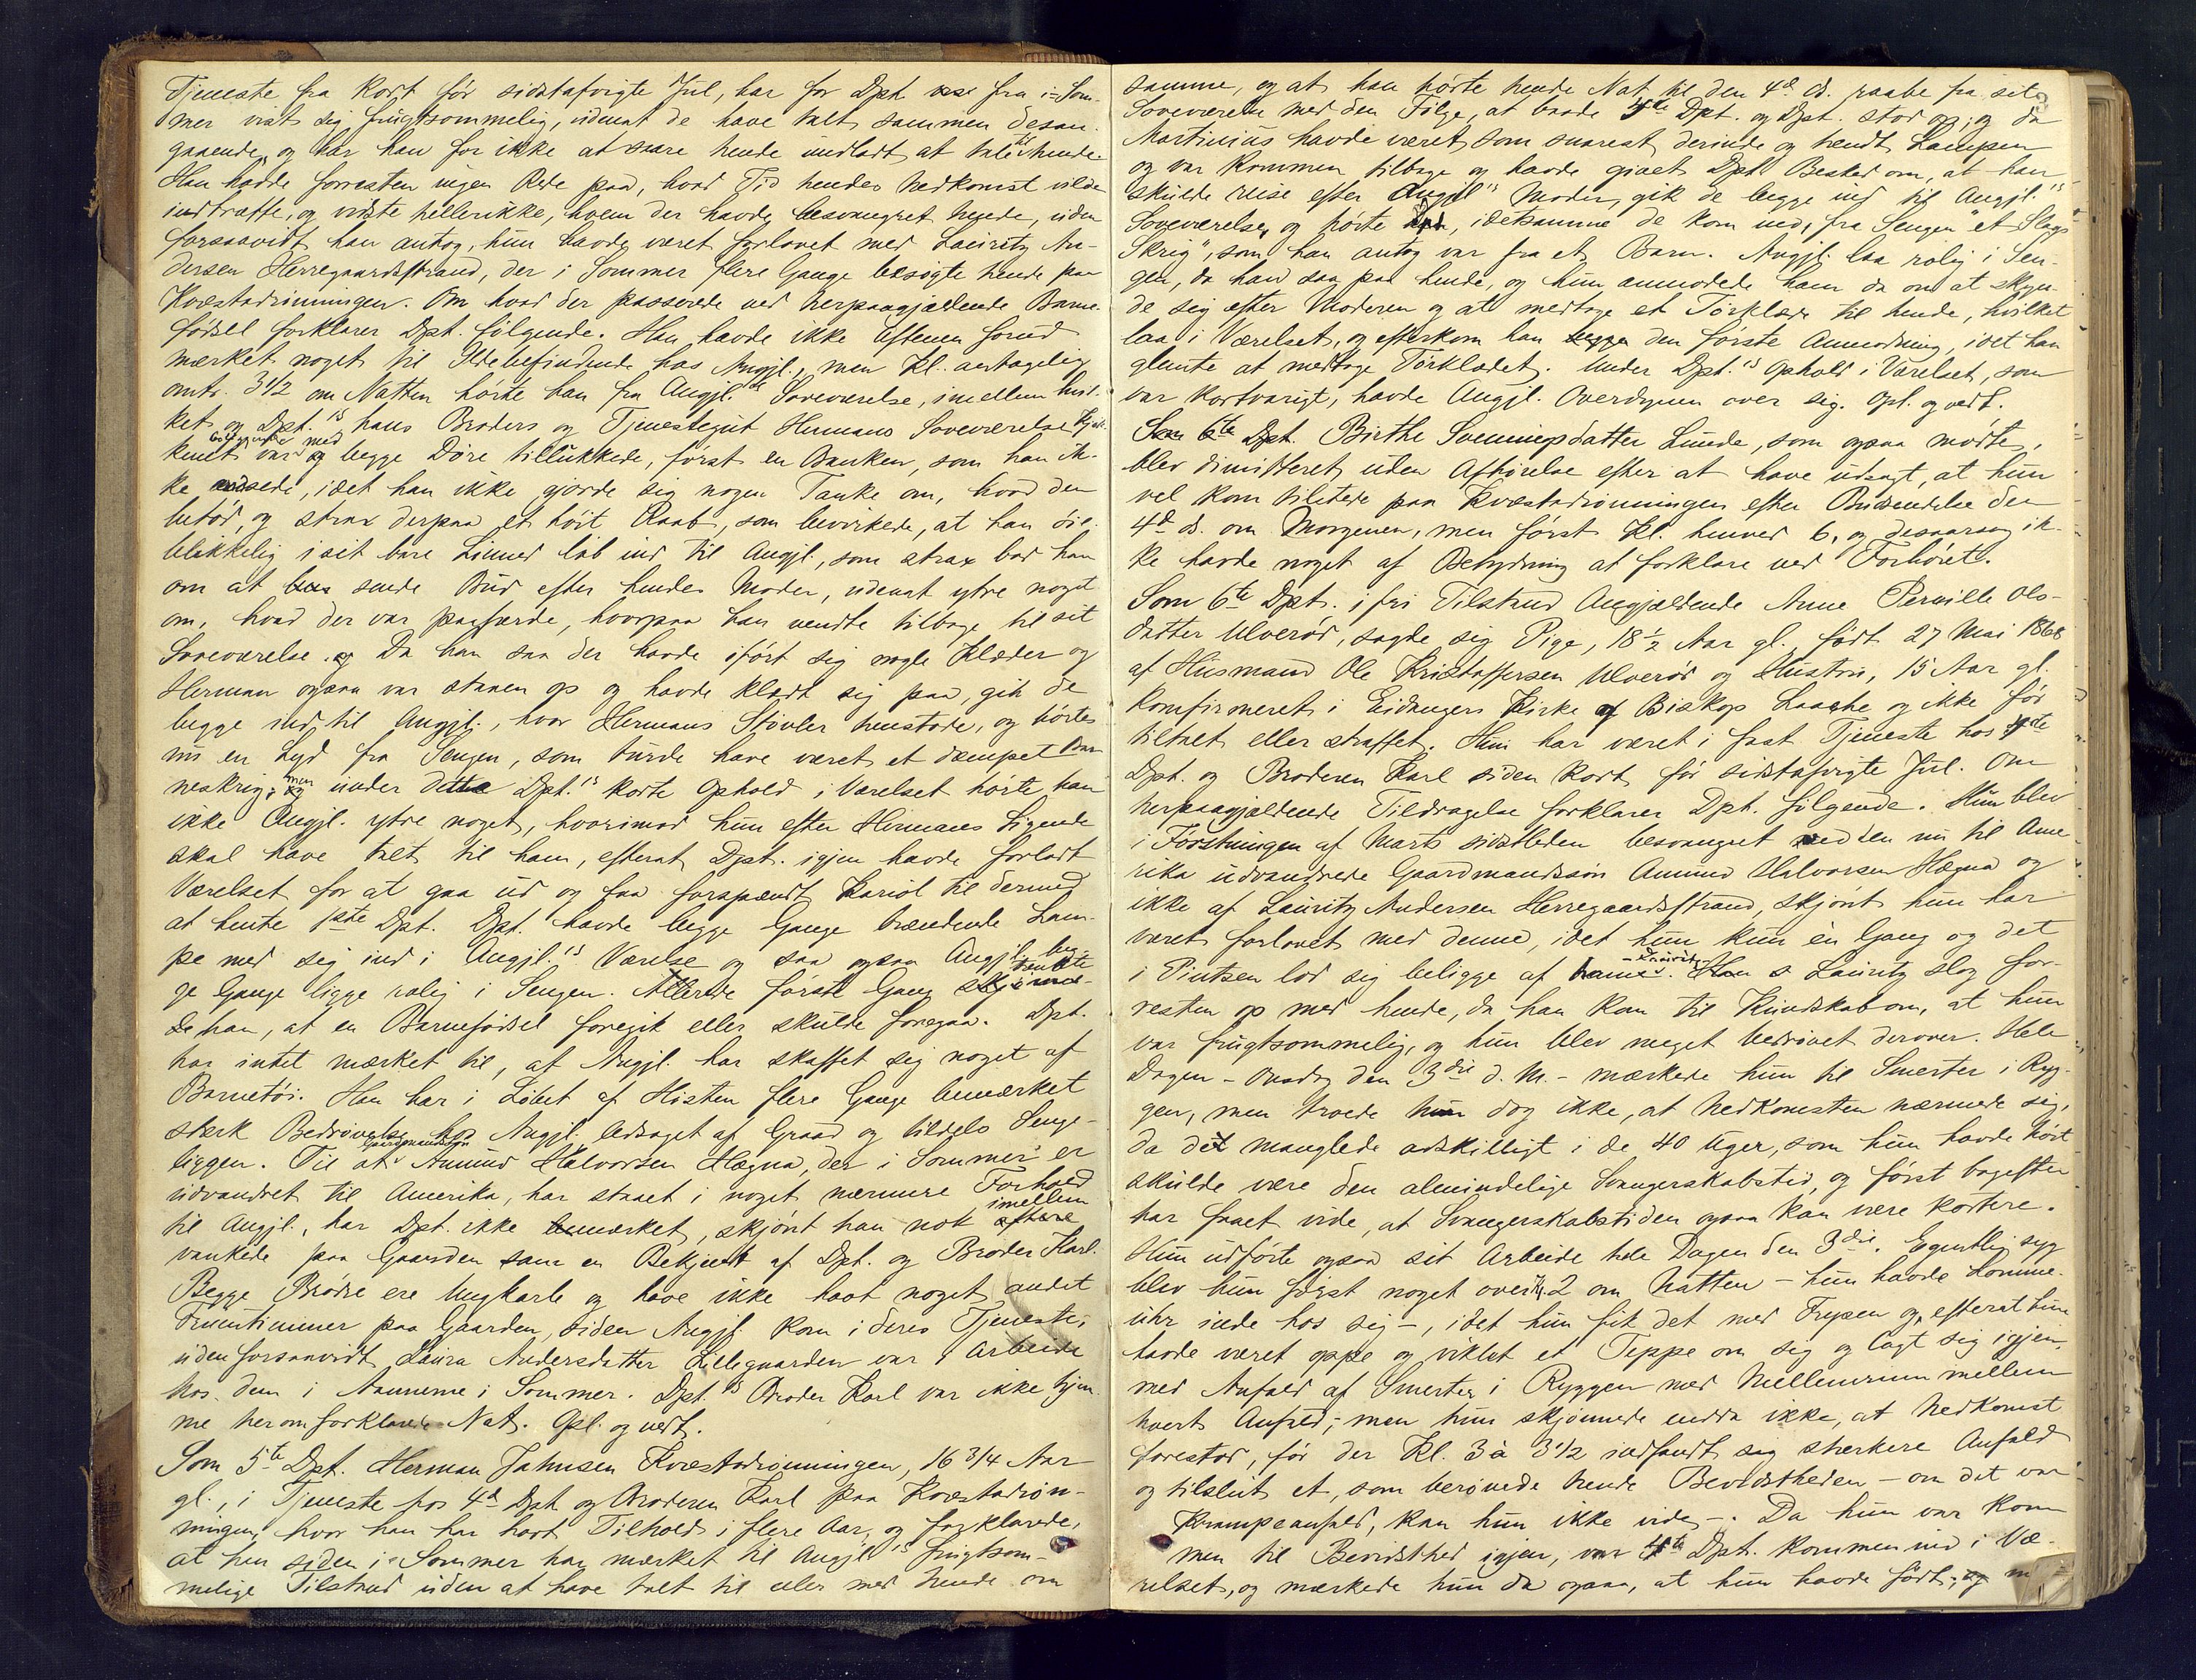 Tjeneste fra kort før sidstafvigte Jul, har for Dpt. fra i Som-
mer vist sig frugtsommelig, udenat de have talt sammen desan-
gaaende, og har han for ikke at saare hende undladt at tale til hende.
Han havde forresten ingen Rede paa, hvad Tid hendes Nedkomst vilde
indtræffe, og vidste hellerikke, hvem der havde besvangret hende, uden
forsaavidt han antog, hun havde været forlovet med Lauritz An-
dersen Herregaardsstrand, der i Sommer flere Gange besøgte hende paa
Kvæstadrønningen. Om hvad der passerede ved herpaagjældende Barne-
fødsel forklarer Dpt. følgende. Han havde ikke Aftenen forud
mærket noget til Ildebefindende hos Angjl., men Kl. antagelig
omtr. 3 1/2 om Natten hørte han fra Angjl.s Soveværelse, imellem hvil-
ket og Dpt.'s hans Broders og Tjenestegut Hermans Soveværelse Kjøk-
kenet var beliggende med begge Døre tillukkede, først en Banken, som han ik-
ke ændsede, idet han ikke gjorde sig nogen Tanke om, hvad den
betød, og strax derpaa et høit Raab, som bevirkede, at han øie-
blikkelig i sit bare Linned løb ind til Angjl., som strax bad ham
om at sende Bud efter hendes Moder, udenat ytre noget
om, hvad der var paafærde, hvorpaa han vendte tilbage til sit
Soveværelse. Da han saa der havde iført sig nogle Klæder og
Herman ogsaa var staaen op og havde klædt sig paa, gik de
begge ind til Angjl., hvor Hermans Støvler henstode, og hørtes
nu en Lyd fra Sengen, som turde have været et dæmpet Bar-
neskrig; men under dette Dpt.'s korte Ophold i Værelset hørte han
ikke Angjl. ytre noget, hvorimod hun efter Hermans Sigende
skal have talt til ham, efterat Dpt. igjen havde forladt
Værelset for at gaa ud og faa forspændt Kariol til dermed
at hente 1ste Dpt. Dpt. havde begge Gange brændende Lam-
pe med sig ind i Angjl.'s Værelse og saa ogsaa Angjl. beg-
ge Gange ligge rolig i Sengen. Allerede første Gang tænkte
han, at en Barnefødsel foregik eller skulde foregaa. Dpt.
har intet mærket til, at Angjl. har skaffet sig noget af
Barnetøi. Han har i Løbet af Høsten flere Gange bemærket
stærk Bedrøvelse hos Angjl. ledsaget af Graad og tildels Senge-
liggen. Til at Gaardmandssøn Amund Halvorsen Høgna, der i Sommer er
udvandret til Amerika, har staaet i noget nærmere Forhold
til Angjl., har Dpt. ikke bemærket, skjønt han nok imellem
vankede paa Gaarden som en Bekjendt af Dpt. og Broder Karl.
Begge Brødre ere Ungkarle og have ikke havt noget andet
Fruentimmer paa Gaarden, siden Angjl. kom i deres Tjeneste,
uden forsaavidt Laura Andersdatter Lillegaarden var i Arbeide
hos dem i Aannerne i Sommer. Dpt.'s Broder Karl var ikke hjem-
me heromforklarede Nat. Opl. og vedt.
Som 5te Dpt. Herman Jahnsen Kvæstadrønningen, 16 3/4 Aar
gl., i Tjeneste hos 4de Dpt. og Broderen Karl paa Kvæstadrøn-
ningen, hvor han har havt Tilhold i flere Aar, og forklarede,
at han siden i Sommer har mærket til Angjl.'s frugtsom-
melige Tilstand uden at have talt til eller med hende om
samme, og at han hørte hende Nat til den 4de ds. raabe fra sit
Soveværelse med den Følge, at baade 4de Dpt. og Dpt. stod op, og da
Martinius havde været som snarest derinde og tændt Lampen
og var kommen tilbage og havde givet Dpt. Besked om, at han
skulde reise efter Angjl.'s Moder, gik de begge ind til Angjl.'s
Soveværelse, og hørte Dpt., idetsamme de kom ind, fra Sengen "et Slags
Skrig", som han antog var fra et Barn. Angjl. laa rolig i Sen-
gen, da han saa paa hende, og hun anmodede ham da om at skyn-
de sig efter Moderen og at medtage et Tørklæde til hende, hvilket
laa i Værelset, og efterkom han den første Anmodning, idet han
glemte at medtage Tørklædet. Under Dpt.'s Ophold i Værelset, som
var kortvarigt, havde Angjl. Overdynen over sig. Opl. og vedt.
Som 6te Dpt. Birthe Svenningsdatter Lunde, som ogsaa mødte,
blev dimitteret uden Afhørelse efter at have udsagt, at hun
vel kom tilstede paa Kvæstadrønningen efter Budsendelse den
4de ds. om Morgenen, men først Kl. henved 6, og desaarsag ik-
ke havde noget af Betydning at forklare ved Forhøret.
Som 6te Dpt. i fri Tilstand Angjældende Anne Pernille Ols-
datter Ulverød, sagde sig Pige, 18 1/2 Aar gl., født 27 Mai 1868
af Husmand Ole Kristoffersen Ulverød og Hustru, 15 Aar gl.
konfirmeret i Eidanger Kirke af Biskop Laache og ikke før
tiltalt eller straffet. Hun har været i fast Tjeneste hos 4de
Dpt. og Broderen Karl siden kort før sidstafvigte Jul. Om
herpaagjældende Tildragelse forklarer Dpt. følgende. Hun blev
i Førstningen af Marts sidstleden besvangret ved den nu til Ame-
rika udvandrede Gaardmandssøn Amund Halvorsen Høgna og
ikke af Lauritz Andersen Herregaardsstrand, skjønt hun har
været forlovet med denne, idet hun kun èn Gang og det
i Pintsen lod sig beligge af Lauritz. Lauritz slog for-
resten op med hende, da han kom til Kundskab om, at hun
var frugtsommelig, og hun blev meget bedrøvet derover. Hele
Dagen – Onsdag den 3die d. M. – mærkede hun til Smerter i Ryg-
gen, men troede hun dog ikke, at Nedkomsten nærmede sig,
da det manglede adskilligt i de 40 Uger, som hun havde hørt
skulde være den almindelige Svangerskabstid, og først bagefter
har faaet vide, at Svangerskabstiden ogsaa kan være kortere.
Hun udførte ogsaa sit Arbeide hele Dagen den 3die. Egentlig syg
blev hun først noget over Kl. 2 om Natten – hun havde Lomme-
uhr inde hos sig –, idet hun fik det med Frysen og, efterat hun
havde været oppe og viklet et Teppe om sig og lagt sig igjen,
med Anfald af Smerter i Ryggen med Mellemrum mellem
hvert Anfald; men hun skjønnede endda ikke, at Nedkomst
forestod, før der Kl. 3 à 3 1/2 indfandt sig stærkere Anfald
og tilslut et, som berøvede hende Bevidstheden – om det var
Krampeanfald, kan hun ikke vide –. Da hun var kom-
men til Bevidsthed igjen, var 4de Dpt. kommen ind i Væ-
relset, og mærkede hun da ogsaa, at hun havde født;